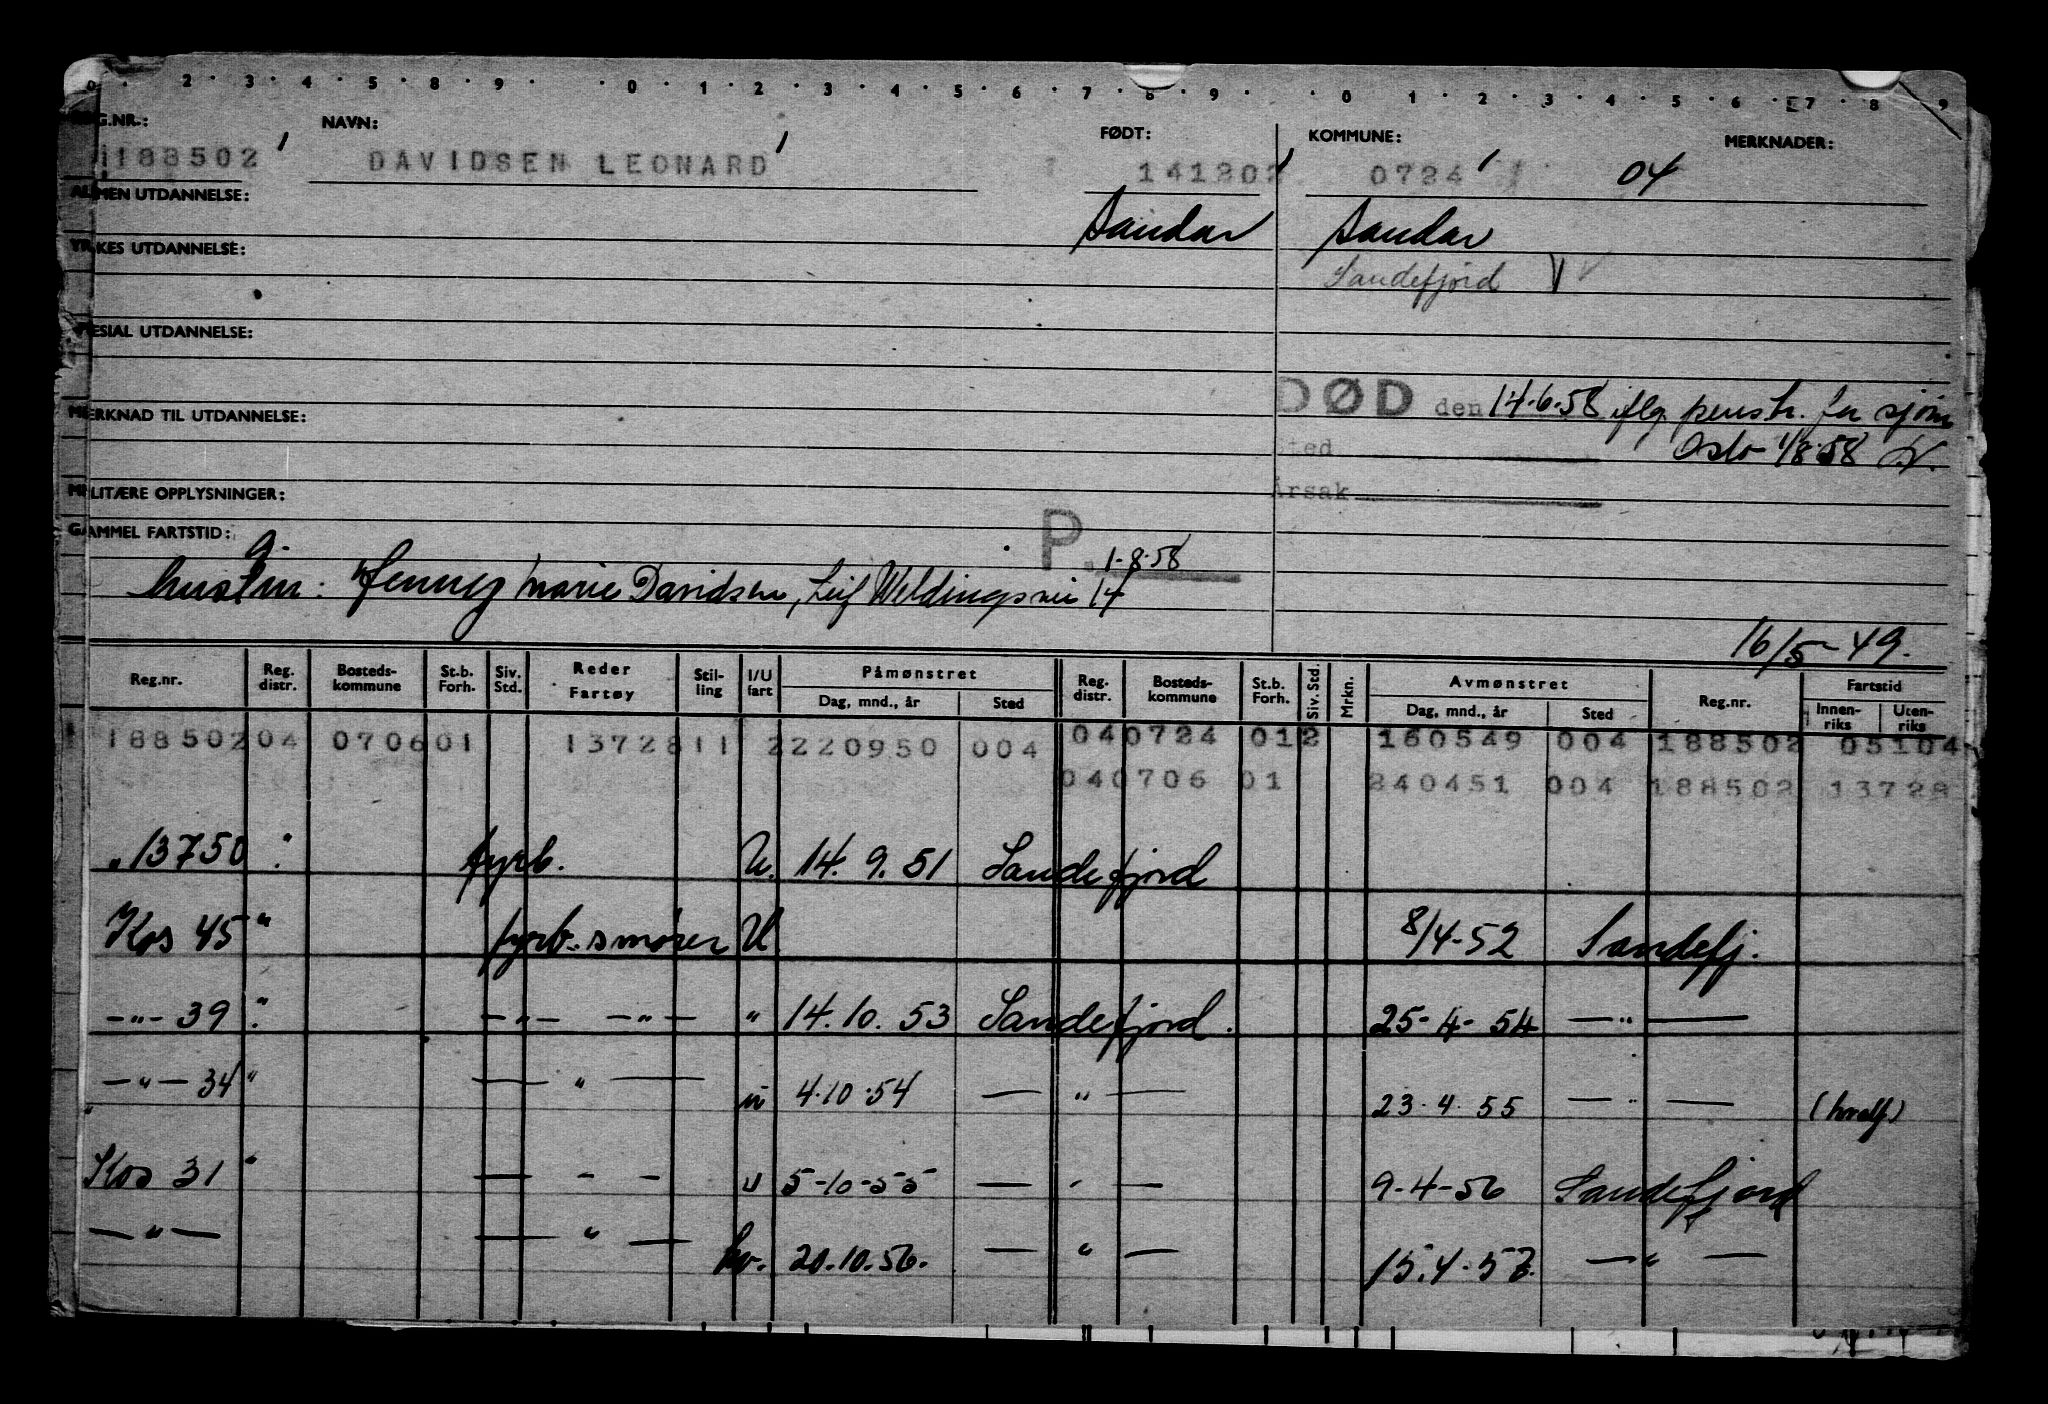 2 3 4 5 8 9 0 1 2 3 4 5 6 7 8 9 0 1 2 3 4 5 6 7 8 9
G.NR.: NAVN: FØDT: KOMMUNE: MERKNADER:
188502 DAVIDSEN LEONARD 141202 0724 04
MEN UTDANNELSE:
Sandar Sandar
KES UTDANNELSE:
Sandefjord
ESIAL UTDANNELSE:
DØD den 14.6.58 iflg. penstr. for sjøm
MERKNAD TIL UTDANNELSE:
Sted Oslo 1/8.58
Årsak
MILITÆRE OPPLYSNINGER:
GAMMEL FARTSTID:
P 1-8-58
g.
hustru: Jenny Marie Davidsen, Leif Weldingsvei 14
16/5-49.
Reg.nr. Reg. distr. Bosteds-kommune St.b. Forh. Siv. Std. Reder Fartøy Stil-ling I/U fart Påmønstret Dag, mnd., år Sted Reg. distr. Bosteds-kommune St.b. Forh. Siv. Std. Mrkn. Avmønstret Dag, mnd., år Sted Reg.nr. Fartstid Innen-riks Uten-riks
188502 04 0706 01 13728 11 2 220950 004 04 0724 01 2 160549 004 188502 05104
04 0706 01 240451 004 188502 13728
" 13750 " fyrb. U. 14. 9. 51 Sandefjord
Kos 45 " fyrb. smører U 8/4-52 Sandefj.
—"— 39 " —"— —"— " 14.10.53 Sandefjord. 25-4-54 —"—
—"— 34 " —"— u 4.10.54 —"— 23.4.55 —"— (hvalf)
Kos 31 " — - - u 5-10-55 — - — 9-4-56 Sandefjord
—"— —"— hv. 20.10.56. —"— 15.4.57. —"—